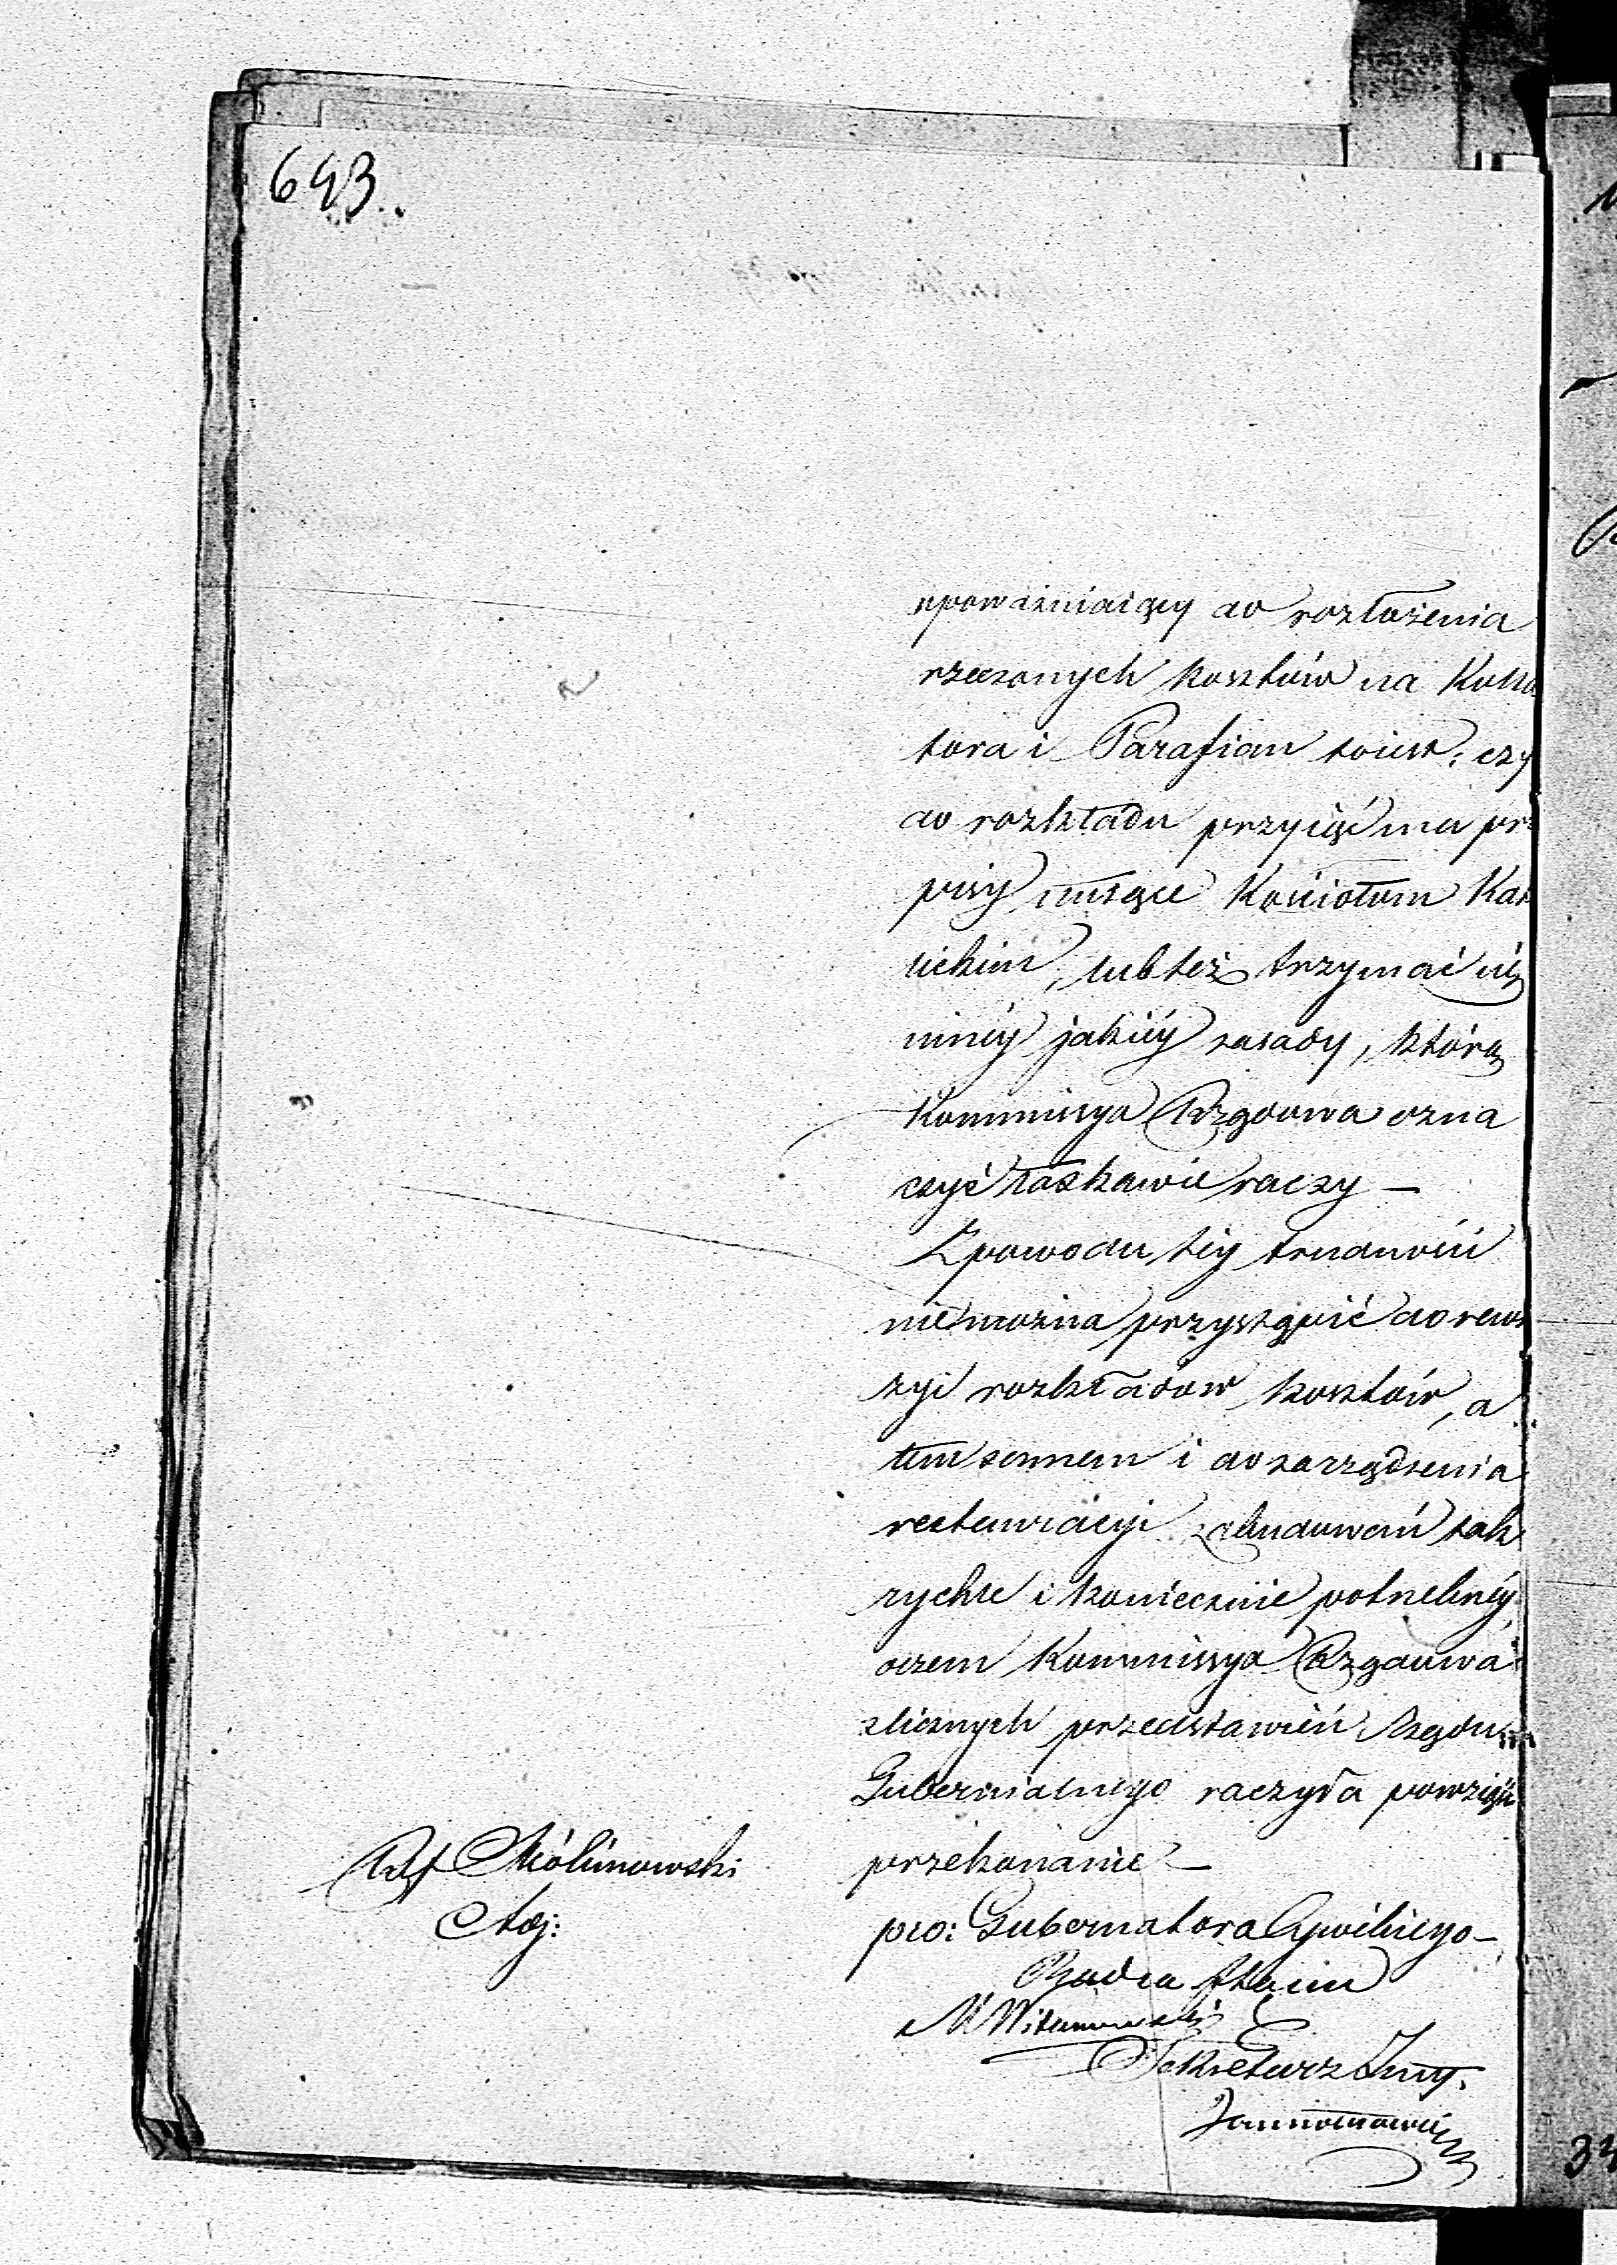 643.
upoważniaiący do rozłożenia
rzeczonych kosztów na Kolla
tora i Parafian toiest: czy
do rozkładu przyiąć ma prze
pisy służące Kościołom Kato
lickim, lub też trzymać się
innéy jakiéy zasady, którą
Kommissya Rządowa ozna
czyć łaskawie raczy —
Z powodu téy trudności
nie można przystąpić do rewi
zyi rozkładów kosztów, a
tem samem i do zarządzenia
restauracyi zabudowań tak
rychle i koniecznie potrzebnéy,
o czem Kommissya Rządowa
z licznych przedstawień Rządu
Gubernialnego raczyła powziąść
przekonanie —
pro: Gubernatora Cywilnego —
Radca Stanu
Sekretarz